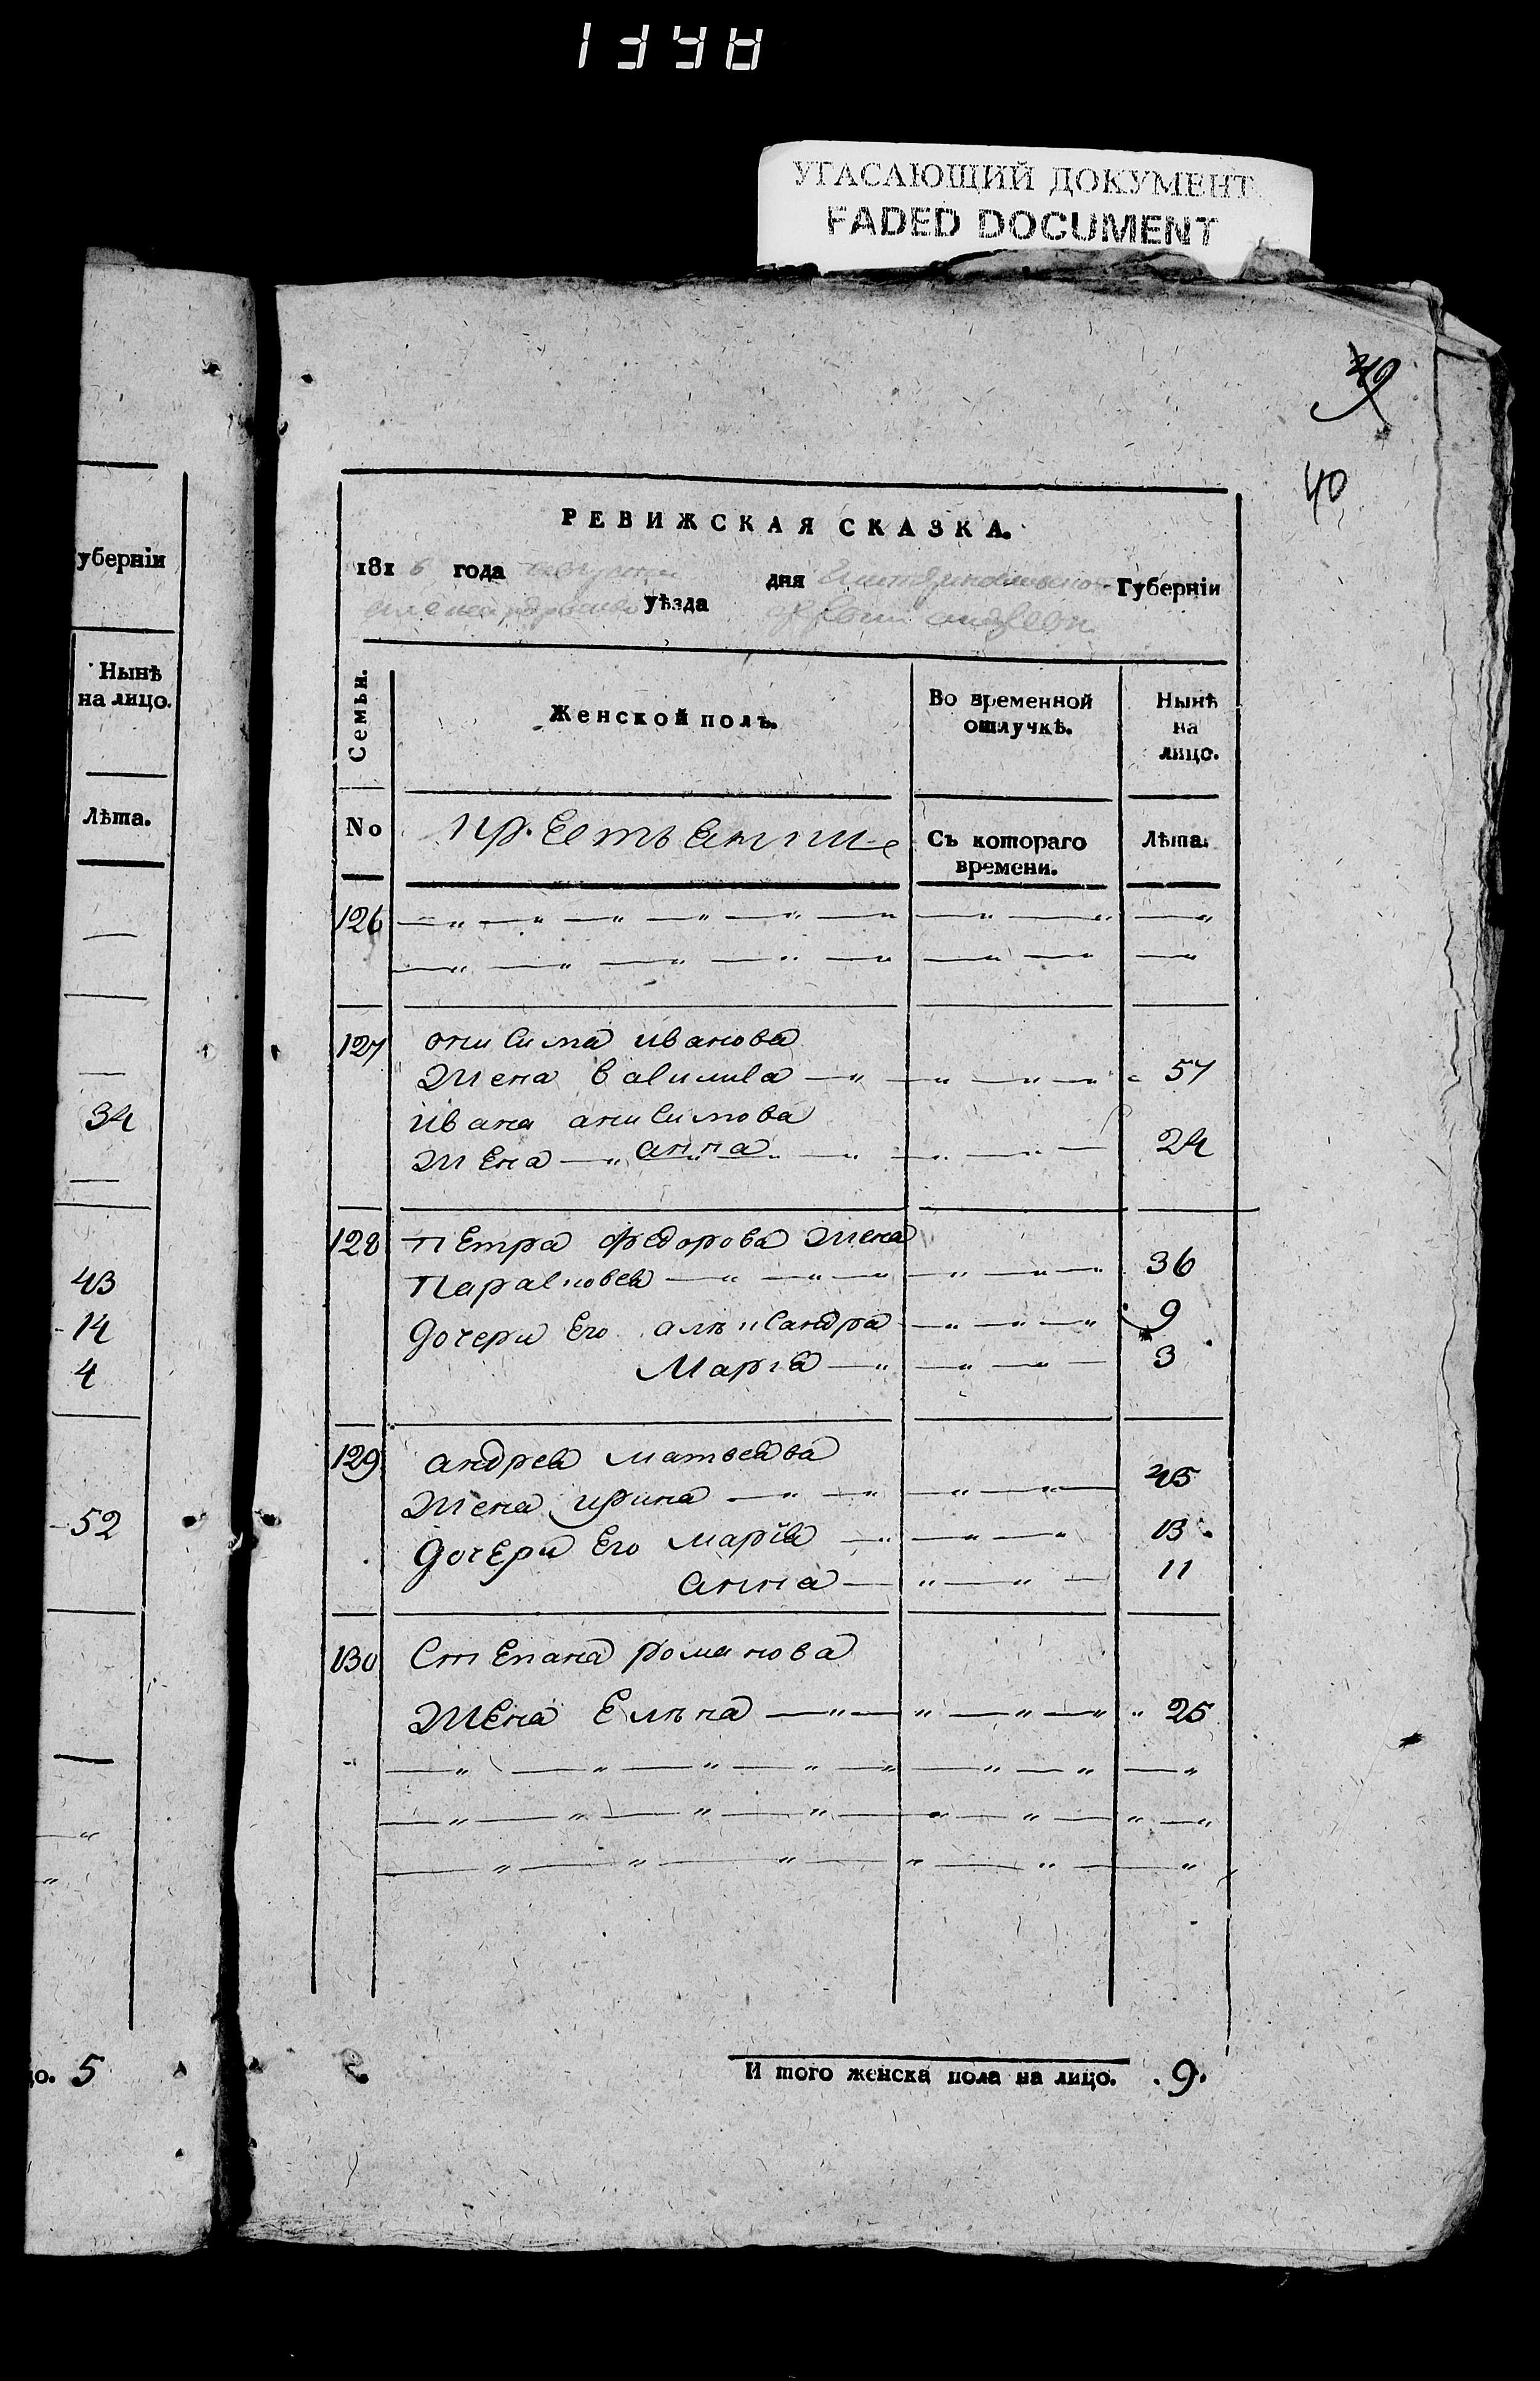 УГАСАЮЩИЙ ДОКУМЕНТ
FADED DOCUMENT
40
РЕВИЖСКАЯ СКАЗКА.
1816 года дня Губерніи
уѣзда
Семьи.
Женской полъ.
Во временной отлучкѣ.
Нынѣ на лицо.
No
Съ котораго времени.
Лѣта.
126
127 онисима иванова
жена василиса 57
ивана анисимова
жена анна 24
128 петра федорова жена
парасковея 36
дочери его алѣксандра 9
марія 3
129 андрея матвеява
жена ирина 45
дочери его марія 13
анна 11
130 степана романова
жена елѣна 25
И того женска пола на лицо. 9.
уберніи
Нынѣ
на лицо.
Лѣта.
34
43
14
4
52
о. 5